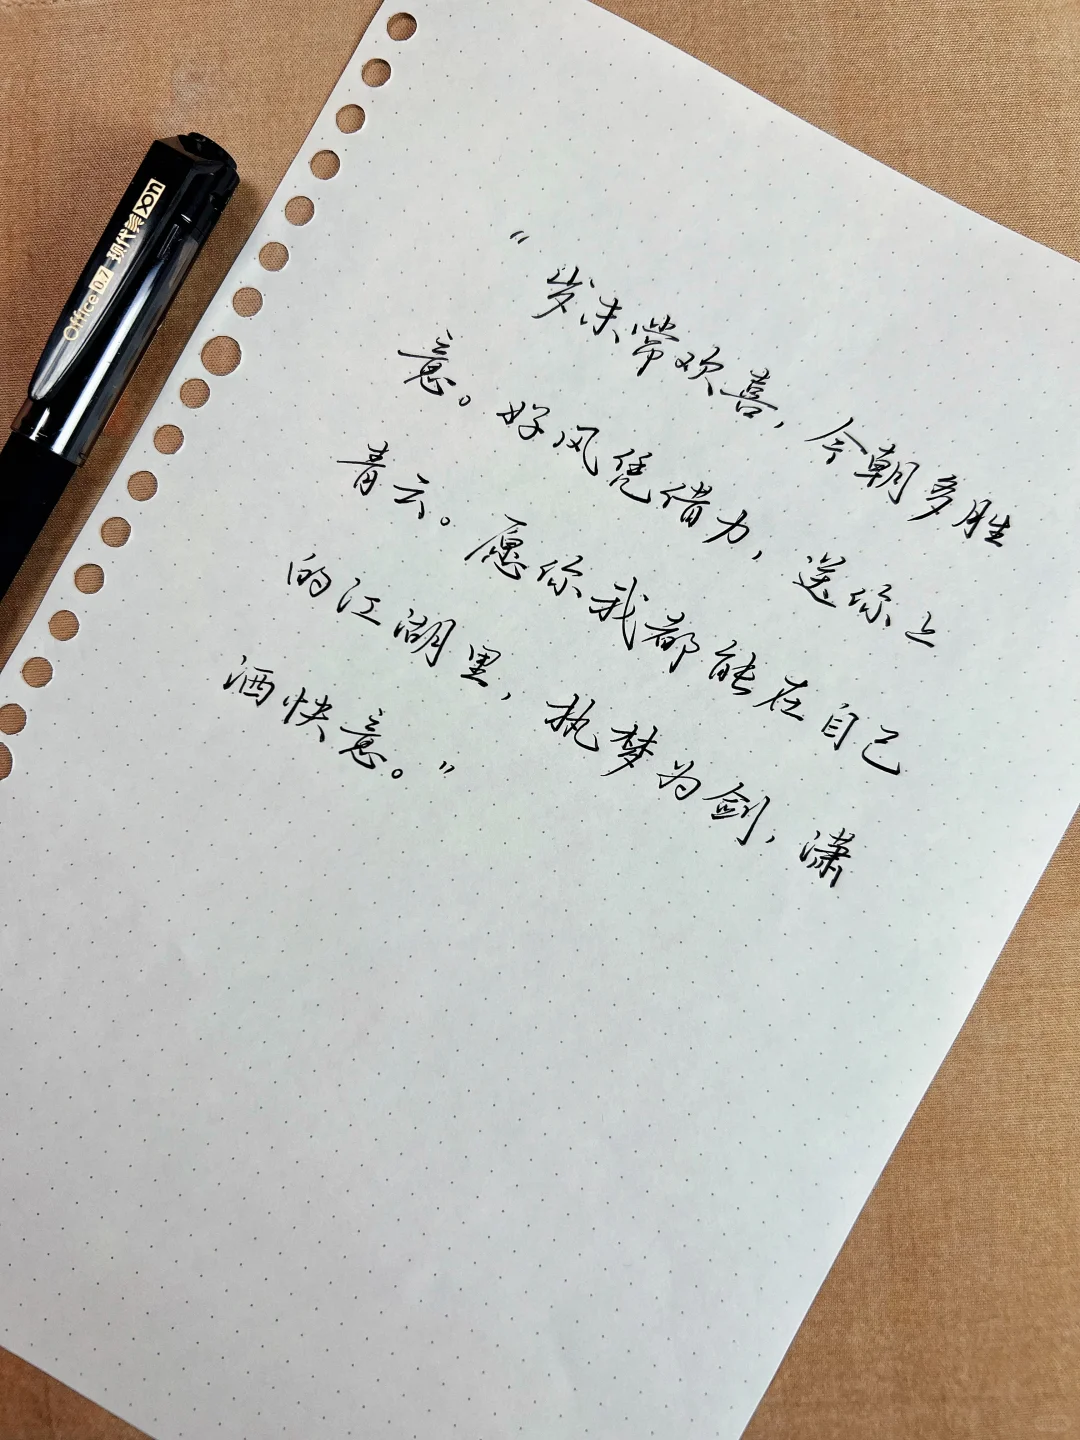 “岁末常欢喜，今朝多胜
意。好风凭借力，送你上
青云。愿你我都能在自己
的江湖里，执梦为剑，潇
洒快意。”
Office 0.7 现代美 XON